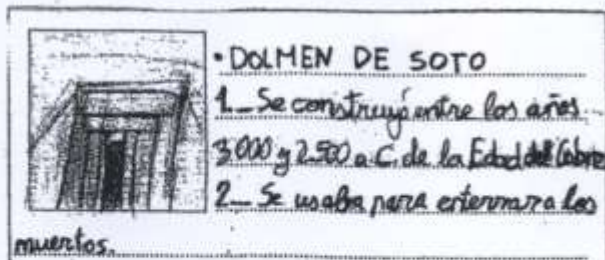 · DOLMEN DE SOTO
1_ Se construyó entre los años
3.000 y 2.500 a.C. de la Edad del Cobre
2_ Se usaba para enterrar a los
muertos.